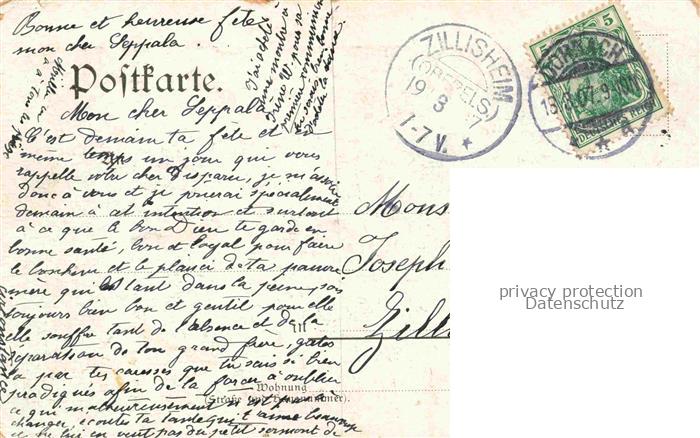 Bonne et heureuse fête
mon cher Seppala.
J'ai acheté
une montre à
Irène W. pour sa
première communion
Postkarte.
Mon cher Seppala
C'est demain ta fête et en
même temps un jour que vous
rappelle votre cher disparu, je m'associe
donc à vous et je prierai spécialement
demain à cet intention et surtout
à ce que le bon Dieu te garde en
bonne santé, bon et loyal pour faire
le bonheur et le plaisir de ta pauvre
mère qui est tant dans la peine, sois
toujours bien bon et gentil pour elle
elle souffre tant de l'absence et de la
séparation de ton grand frère, gâtes
la par tes caresses que tu sais si bien
prodiguer afin de la forcer à oublier
ce qui malheureusement n'est pas à
changer, écoutes ta tante qui t'aime beaucoup
et ne lui en veut pas du petit sermont de
ZILLISHEIM
(OBERELS.)
19 8 7
1-7 V.
DORNACH
15.8.07. 9
5 5
DEUTSCHES REICH
Mons
Joseph
in
Zill
Wohnung
(Straße und Hausnummer)
privacy protection
Datenschutz